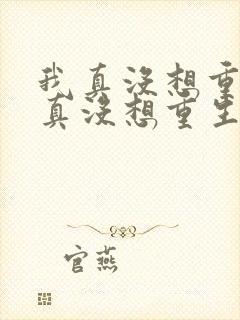 我真没想重
真没想重生
官燕